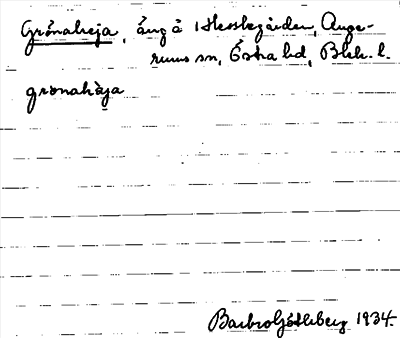 Grönaheja, äng å Hesslegården, Auge-
rums sn, Östra hd, Blek. l.
grönahäja
Barbro Götleberg 1934.